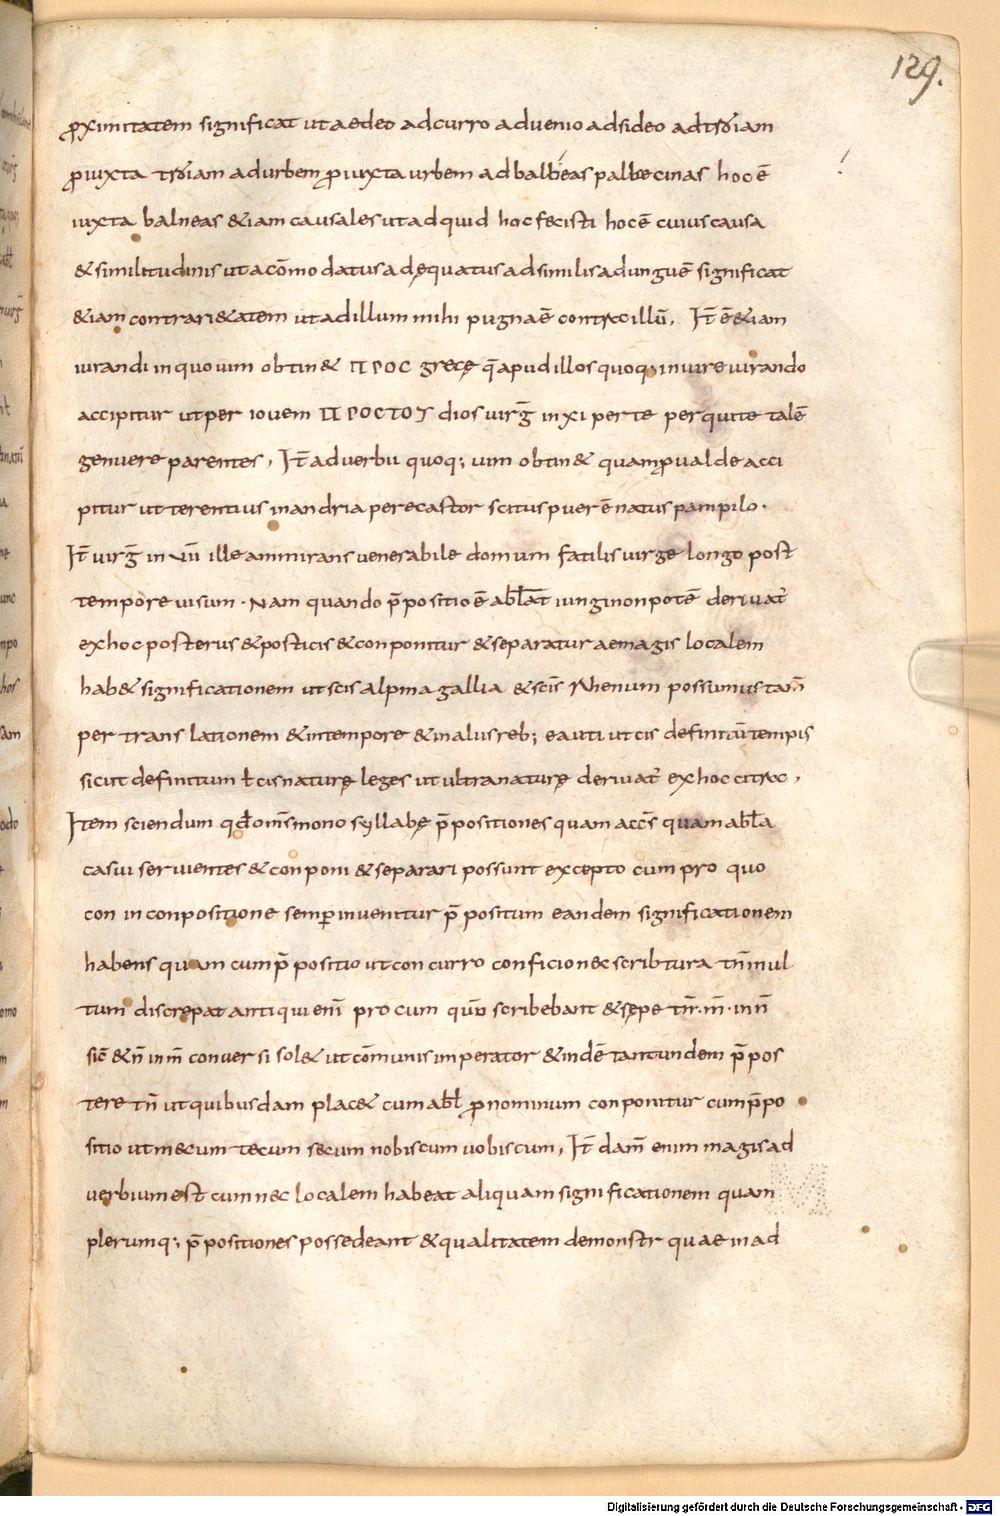 129.
ꝓximitatem significat ut aedeo adcurro aduenio adsideo ad troiam
ꝓ iuxta troiam ad urbem ꝓ iuxta urbem ad balbeas palbecinas hoc ē
iuxta balneas &iam causales ut ad quid hoc fecisti hoc ē cuius causa
& similitudinis ut acōmodatus adęquatus adsimilis ad unguē significat
&iam contrari&atem ut ad illum mihi pugna ē contra illū. It̄ ē &iam
iurandi in quo uim obtin& ΠΡΟC gręcę q̄ apud illos quoq; in iure iurando
accipitur ut per iouem ΠΡΟCΤΟΥ dios uirḡ in xi per te per qui te talē
genuere parentes, It̄ aduerbii quoq; uim obtin& quam ꝓ ualde acci
pitur ut terentius in andria per ecastor scitus puer ē natus pampilo.
It̄ uirḡ in uii ille ammirans uenerabile domum fatilis uirge longo post
tempore uisum. Nam quando p̄positio ē ablat̄ iungi non potē deriuat̄
ex hoc posterus & posticis & conponitur & separatur ae magis localem
hab& significationem ut scis alpina gallia & scis Rhenum possumus tam̄
per translationem & in tempore & in aliis reb; ea uti ut cis definitū tempis
sicut definitum ł cis naturę leges ut ultra naturę deriuat̄ ex hoc citra,
Item sciendum qđ om̄s monosyllabę p̄positiones quam accs̄ quam abła
casui seruientes & conponi & separari possunt excepto cum pro quo
con in conpositione semꝑ inuenitur p̄positum eandem significationem
habens quam cum p̄positio ut concurro conficio nec scribtura tn̄ mul
tum discrepat antiqui enī pro cum quō scribebant & sępe tn̄.m̄.in n̄
sic̄ & n̄ in m̄ conuersi sol& ut cōmunis imperator & indē tantundem p̄pos
tere tn̄ ut quibusdam plac& cum abł ꝓnominum conponitur cum p̄po
sitio ut mecum tecum secum nobiscum uobiscum, It̄ dam̄ enim magis ad
uerbium est cum nec localem habeat aliquam significationem quam
plerumq; p̄positiones possedeant & qualitatem demonstr quae in ad
Digitalisierung gefördert durch die Deutsche Forschungsgemeinschaft - DFG